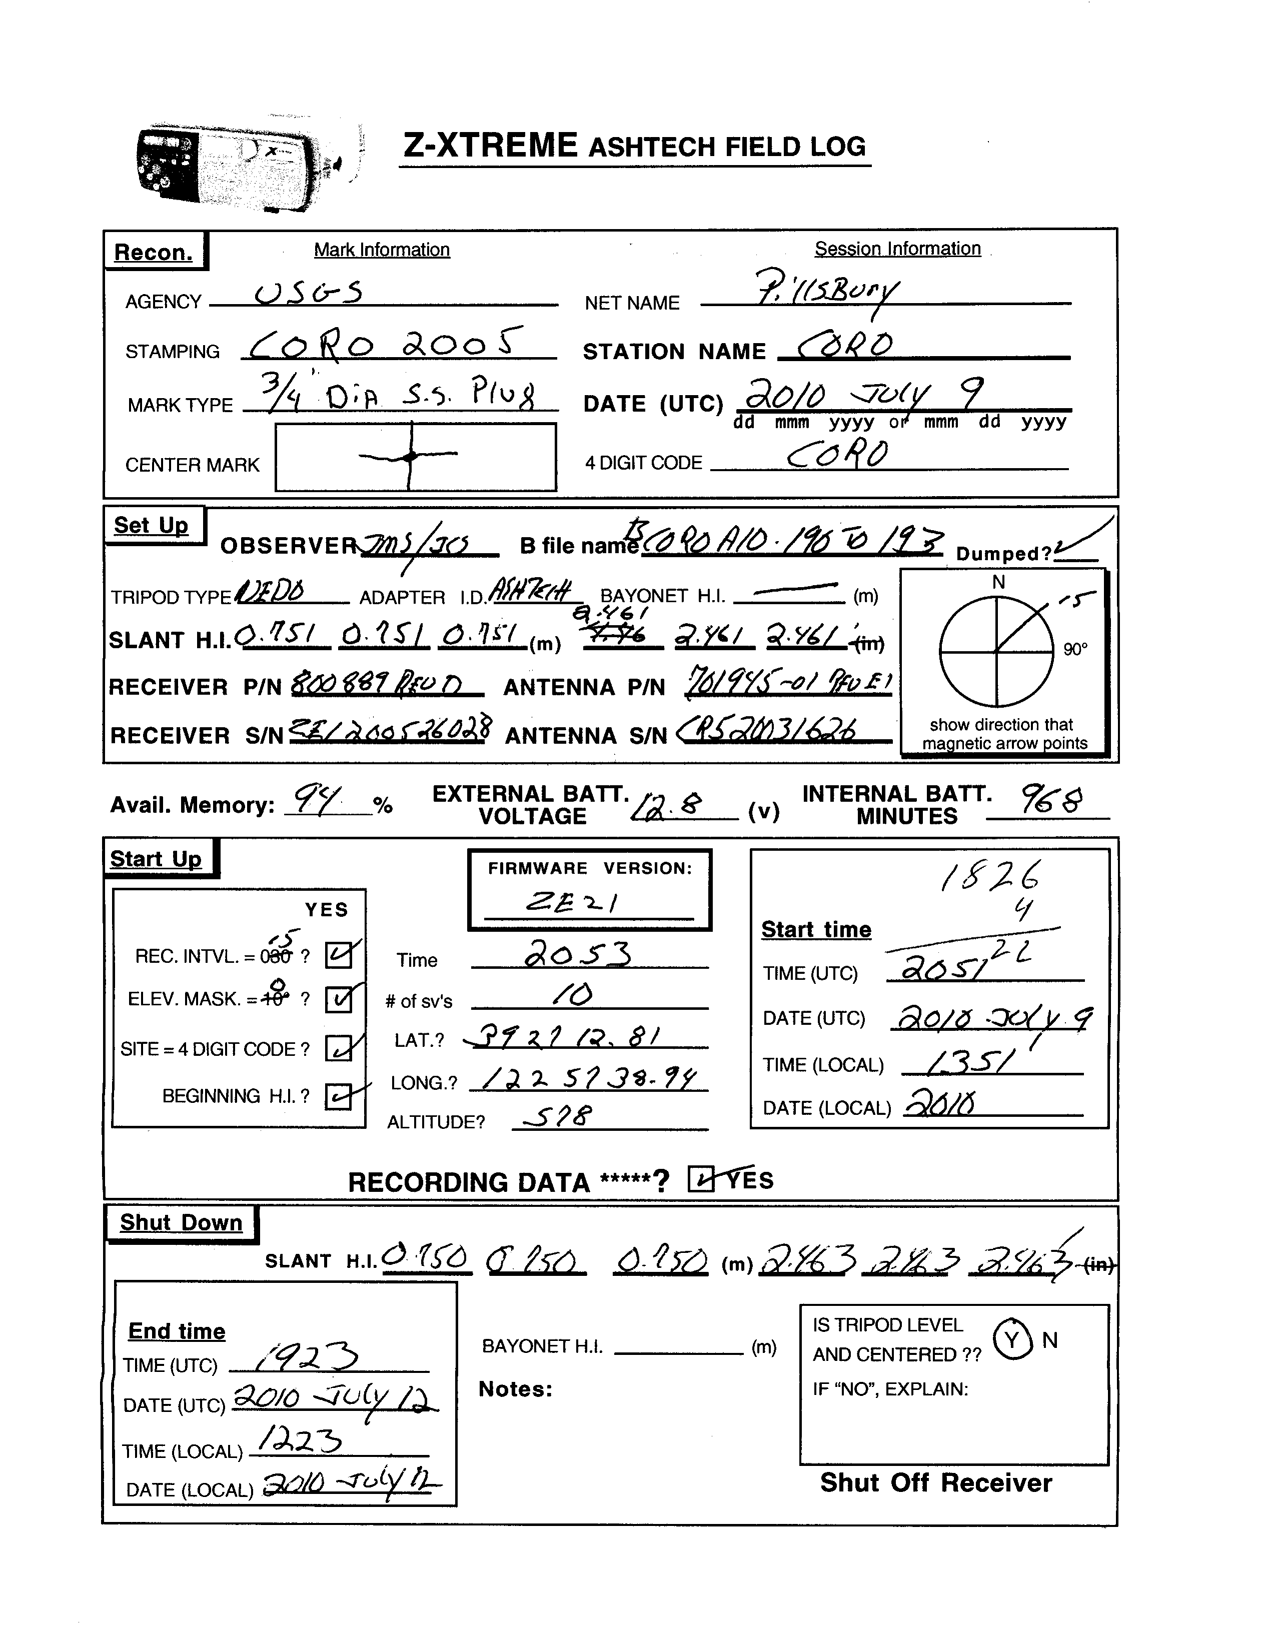 Z-XTREME ASHTECH FIELD LOG
Recon. Mark Information Session Information
AGENCY USGS NET NAME PillsBury
STAMPING CORO 2005 STATION NAME CORO
MARK TYPE 3/4" DiA S.S. Plug DATE (UTC) 2010 July 9
dd mmm yyyy or mmm dd yyyy
CENTER MARK 4 DIGIT CODE CORO
Set Up OBSERVER JMS/JCS B file name BCOROA10.190 to 193 Dumped? ✓
TRIPOD TYPE NEDO ADAPTER I.D. ASHTECH BAYONET H.I. — (m)
N
15
90°
2.461
SLANT H.I. 0.751 0.751 0.751 (m) 2.461 2.461 (in)
RECEIVER P/N 800889 REV D ANTENNA P/N 701945-01 REV E1
RECEIVER S/N ZE1200526028 ANTENNA S/N CR520031626
show direction that
magnetic arrow points
Avail. Memory: 94 % EXTERNAL BATT. VOLTAGE 12.8 (v) INTERNAL BATT. MINUTES 968
Start Up
FIRMWARE VERSION:
ZE21
YES
REC. INTVL. = 030 15 ? ✓
ELEV. MASK. = 10° 0 ? ✓
SITE = 4 DIGIT CODE ? ✓
BEGINNING H.I. ? ✓
Time 2053
# of sv's 10
LAT.? 39 27 12.81
LONG.? 122 57 38.94
ALTITUDE? 578
1826
4
22
Start time
TIME (UTC) 2051
DATE (UTC) 2010 July 9
TIME (LOCAL) 1351
DATE (LOCAL) 2010
RECORDING DATA *****? ✓ YES
Shut Down
SLANT H.I. 0.750 0.750 0.750 (m) 2.463 2.463 2.463 (in)
End time
TIME (UTC) 1923
DATE (UTC) 2010 July 12
TIME (LOCAL) 1223
DATE (LOCAL) 2010 July 12
BAYONET H.I. (m)
Notes:
IS TRIPOD LEVEL
AND CENTERED ?? Y N
IF "NO", EXPLAIN:
Shut Off Receiver